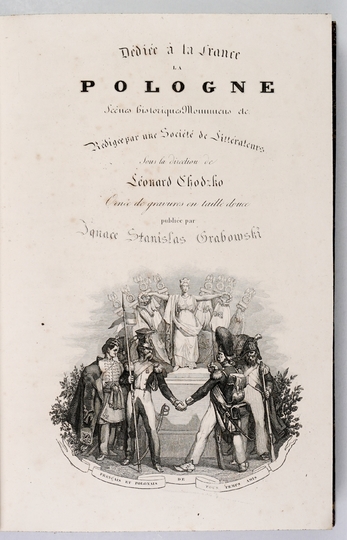 Dédiée à la France
LA
POLOGNE
Scènes historiques Monumens etc
Rédigée par une Société de Littérateurs
Sous la direction de
Léonard Chodzko
Ornée de gravures en taille douce
publiée par
Ignace Stanislas Grabowski
FRANÇAIS ET POLONAIS DE TOUS TEMPS AMIS